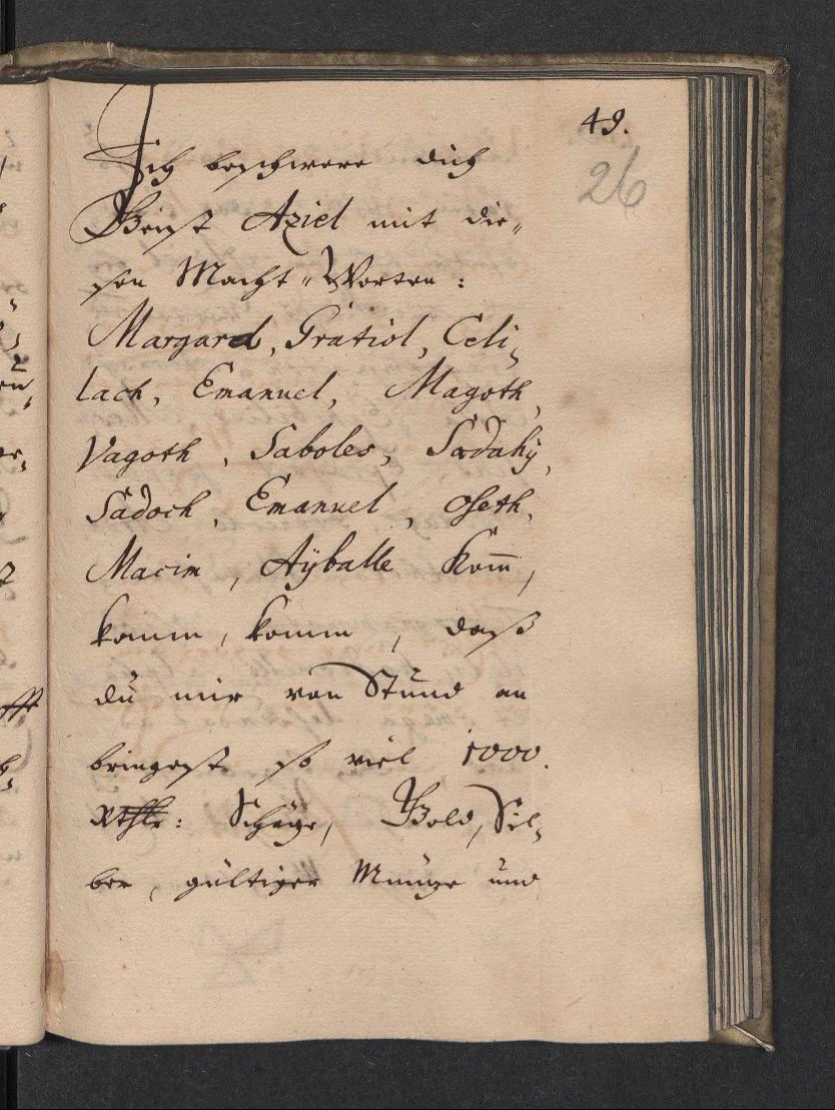 49.
26
Ich beschwere dich
Geist Aziel mit die„
sen Macht„Worten:
Margard, Gratiol, Celi„
lach, Emanuel, Magoth,
Vagoth, Saboles, Sadahÿ,
Sadoch, Emanuel, oseth,
Macim, Aÿballe Kom̅,
komm, komm, daß
du mir von Stund an
bringest so viel 1000.
Rthlr: Schäze, Gold, Sil„
ber, gültiger Münze und